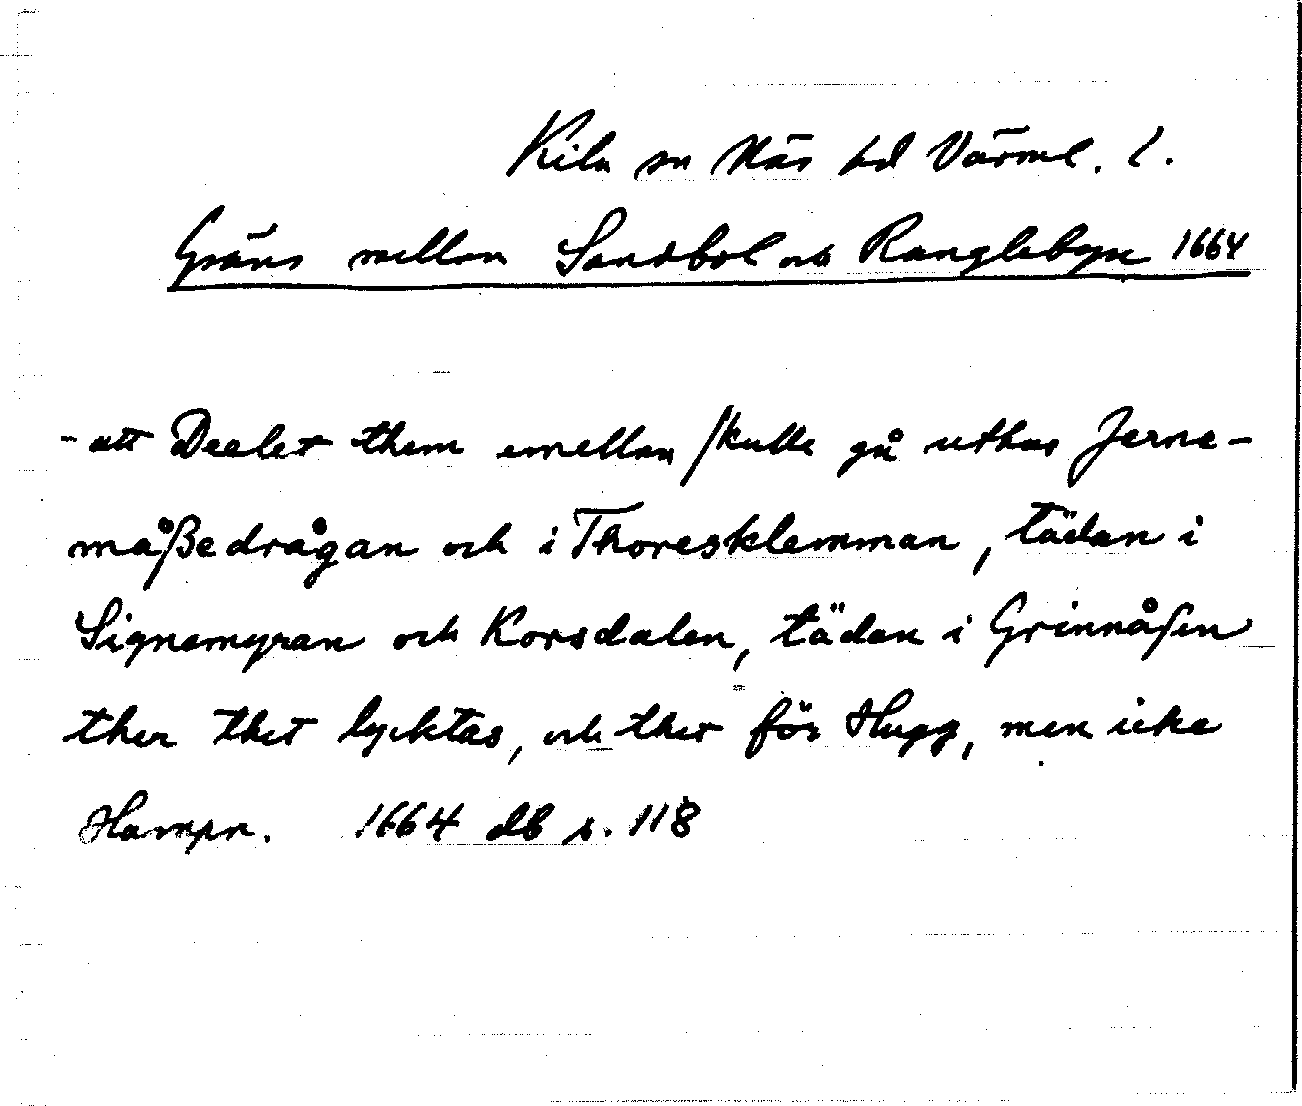 Kila sn Näs hd Värml. l.
Gräns mellan Sandbol och Ranglebyn 1664
- att Deelet them emellan skulle gå uthur Jerne-
måßedrågan och i Thoresklemman, tädan i
Signemyran och Korsdalen, tädan i Grinnåsen
ther thet lycktas, och ther för Hugg, men icke
Hampn. 1664 db s. 118